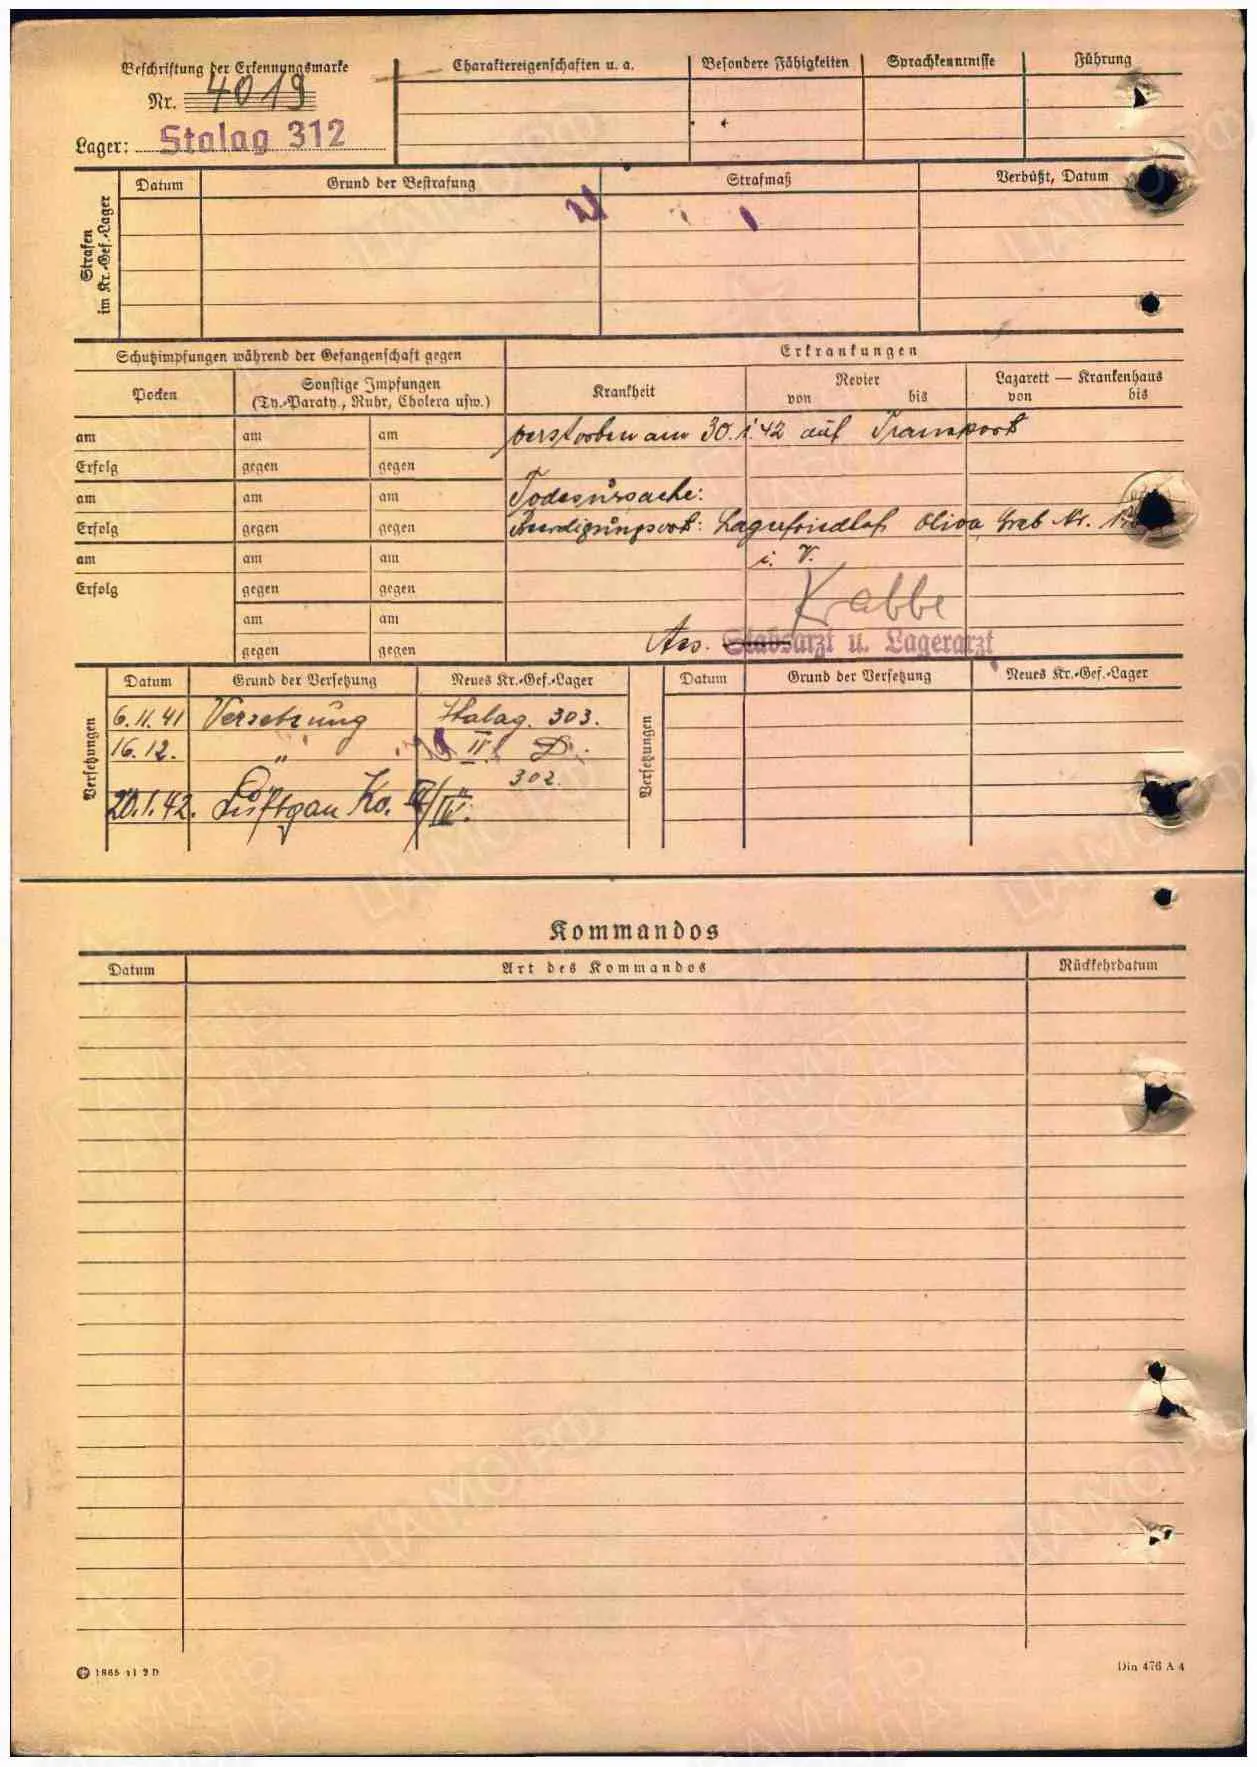 Beschriftung der Erkennungsmarke
Nr. 4019
Lager: Stalag 312
Charaktereigenschaften u. a.
Besondere Fähigkeiten
Sprachkenntnisse
Führung
Strafen im Kr.-Gef.-Lager
Datum
Grund der Bestrafung
Strafmaß
Verbüßt, Datum
Schutzimpfungen während der Gefangenschaft gegen
Erkrankungen
Pocken
Sonstige Impfungen
(Ty.-Paraty., Ruhr, Cholera usw.)
Krankheit
Revier
von bis
Lazarett — Krankenhaus
von bis
am am am
Erfolg gegen gegen
am am am
Erfolg gegen gegen
am am am
Erfolg gegen gegen
am am
gegen gegen
verstorben am 30.1.42 auf Transport
Todesursache:
Beerdigungsort: Lagerfriedhof Oliva Grab Nr.
i. V.
Krabbe
Ass. Stabsarzt u. Lagerarzt
Versetzungen
Datum Grund der Versetzung Neues Kr.-Gef.-Lager
6.11.41 Versetzung Stalag. 303.
16.12. " II D
302
20.1.42. Luftgau Ko. III/IV.
Versetzungen
Datum Grund der Versetzung Neues Kr.-Gef.-Lager
Kommandos
Datum Art des Kommandos Rückkehrdatum
1865 41 2 D
Din 476 A 4
ЦАМО РФ
ПАМЯТЬ НАРОДА